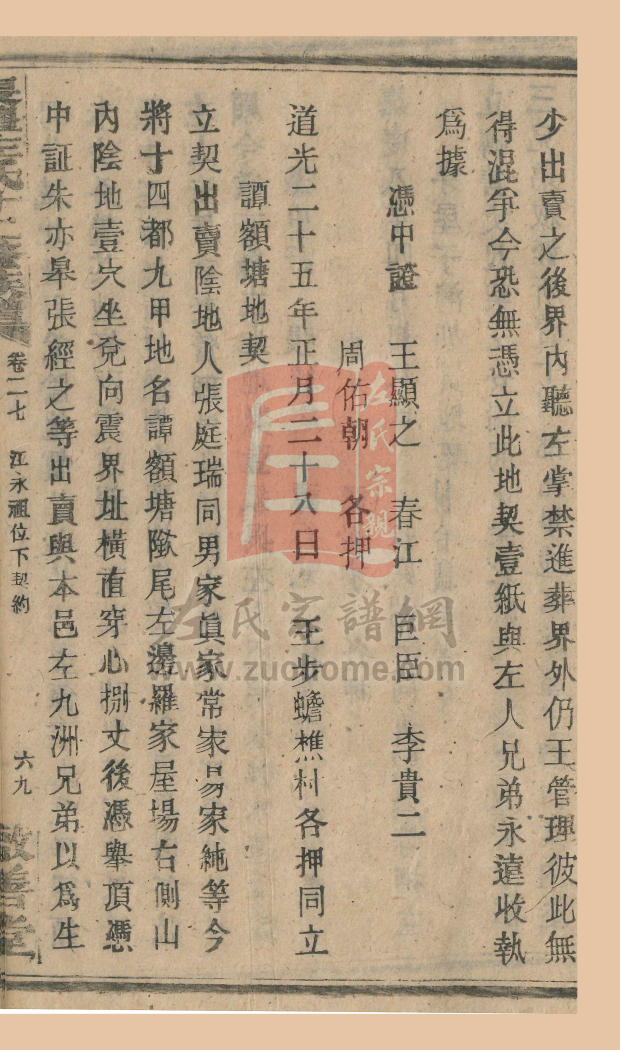 少出賣之後界內聽左掌禁進葬界外仍王管理彼此無
得混爭今恐無憑立此地契壹紙與左人兄弟永遠收執
爲據
憑中證 王顯之 春江 巨臣 李貴二
周佑朝 各押
道光二十五年正月二十八日 王步蟾樵村各押同立
譚額塘地契
立契出賣陰地人張庭瑞同男家眞家常家易家純等今
將十四都九甲地名譚額塘歘尾左邊羅家屋場右側山
內陰地壹穴坐兌向震界址橫直穿心捌丈後憑舉頂憑
中証朱亦皋張經之等出賣與本邑左九洲兄弟以爲生
卷二七 江永祖位下契約 六九
敦善堂
左氏宗親
左氏宗譜網
www.zuohome.com